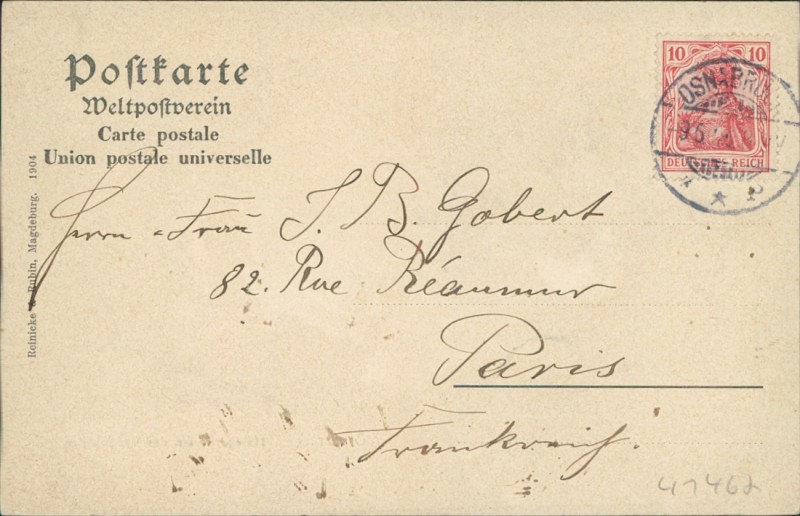 Postkarte
Weltpostverein
Carte postale
Union postale universelle
Reinicke & Rubin, Magdeburg. 1904
10 10
DEUTSCHES REICH
OSNABRÜCK
Herrn & Frau J. B. Gobert
82. Rue Réaumur
Paris
Frankreich.
41462